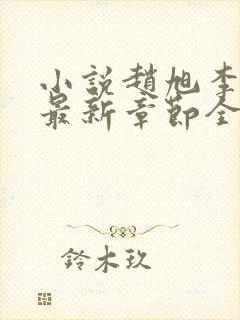 小説趙旭李
最新章節全
鈴木玖